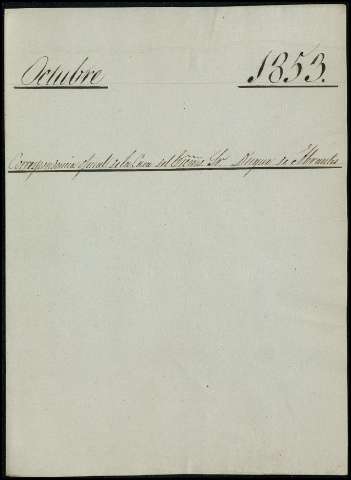 Octubre 1853.
Correspondencia oficial de la Casa del Excmo. Sr. Duque de Abrantes